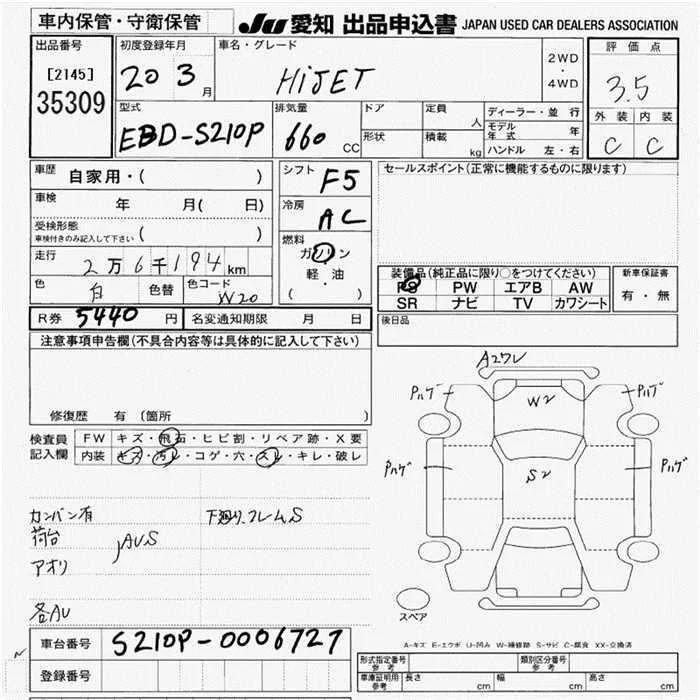 車内保管・守衛保管
JU 愛知 出品申込書 JAPAN USED CAR DEALERS ASSOCIATION
出品番号
[2145]
35309
初度登録年月
20 3 月
車名・グレード
HiJET
2WD
・
4WD
評価点
3.5
外装 内装
C C
型式
EBD-S210P
排気量
660 CC
ドア
形状
定員
人
積載
kg
ディーラー・並行
モデル年式 年
ハンドル 左・右
車歴
自家用・( )
車検
年 月( 日)
受検形態
車検付きのみ記入して下さい ( )
走行
2万6千194km
色
白
色替
色コード
W20
シフト
F5
冷房
AC
燃料
ガソリン
・
軽・油
( )
セールスポイント(正常に機能するものに限ります)
装備品(純正品に限り○をつけてください)
PS PW エアB AW
SR ナビ TV カワシート
新車保証書
有・無
R券 5440 円
名変通知期限 月 日
後日品
注意事項申告欄(不具合内容等は具体的に記入して下さい)
修復歴 有(箇所 )
検査員記入欄
FW キズ・飛石・ヒビ割・リペア跡・X要
内装 キズ・汚レ・コゲ・穴・スレ・キレ・破レ
カンバン有
荷台
アオリ
AUS
各AU
下廻り、フレームS
A2ワレ
Pハゲ
W2
Pハゲ
Pハゲ
S2
Pハゲ
スペア
A-キズ E-エクボ U-凹み W-補修跡 S-サビ C-腐食 XX-交換済
車台番号
S210P-0006727
登録番号
型式指定番号
参考
類別区分番号
参考
車庫証明用
参考
長さ cm
幅 cm
高さ cm